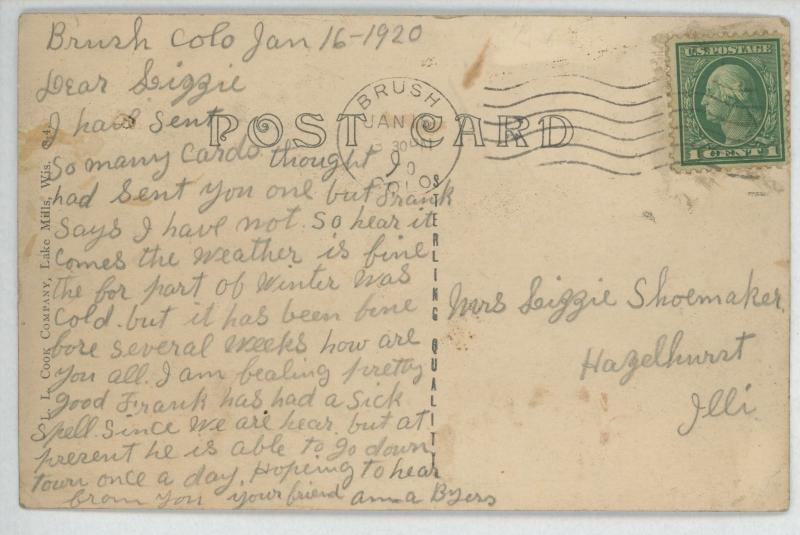 Brush Colo Jan 16-1920
Dear Lizzie
I have sent
So many Cards thought I
had Sent you one but Frank
Says I have not. So hear it
Comes the Weather is fine
the for part of Winter Was
Cold. but it has been fine
fore several Weeks how are
you all. I am fealing pretty
good Frank has had a Sick
Spell. Since We are hear. but at
present he is able to go down
town once a day. Hopeing to hear
from you your friend Anna Byers
POST CARD
BRUSH
JAN
30
COLO
U.S. POSTAGE
1 CENT 1
STERLING QUALITY
L. L. COOK COMPANY, LAKE MILLS, WIS.
Mrs Lizzie Shoemaker
Hazelhurst
Illi